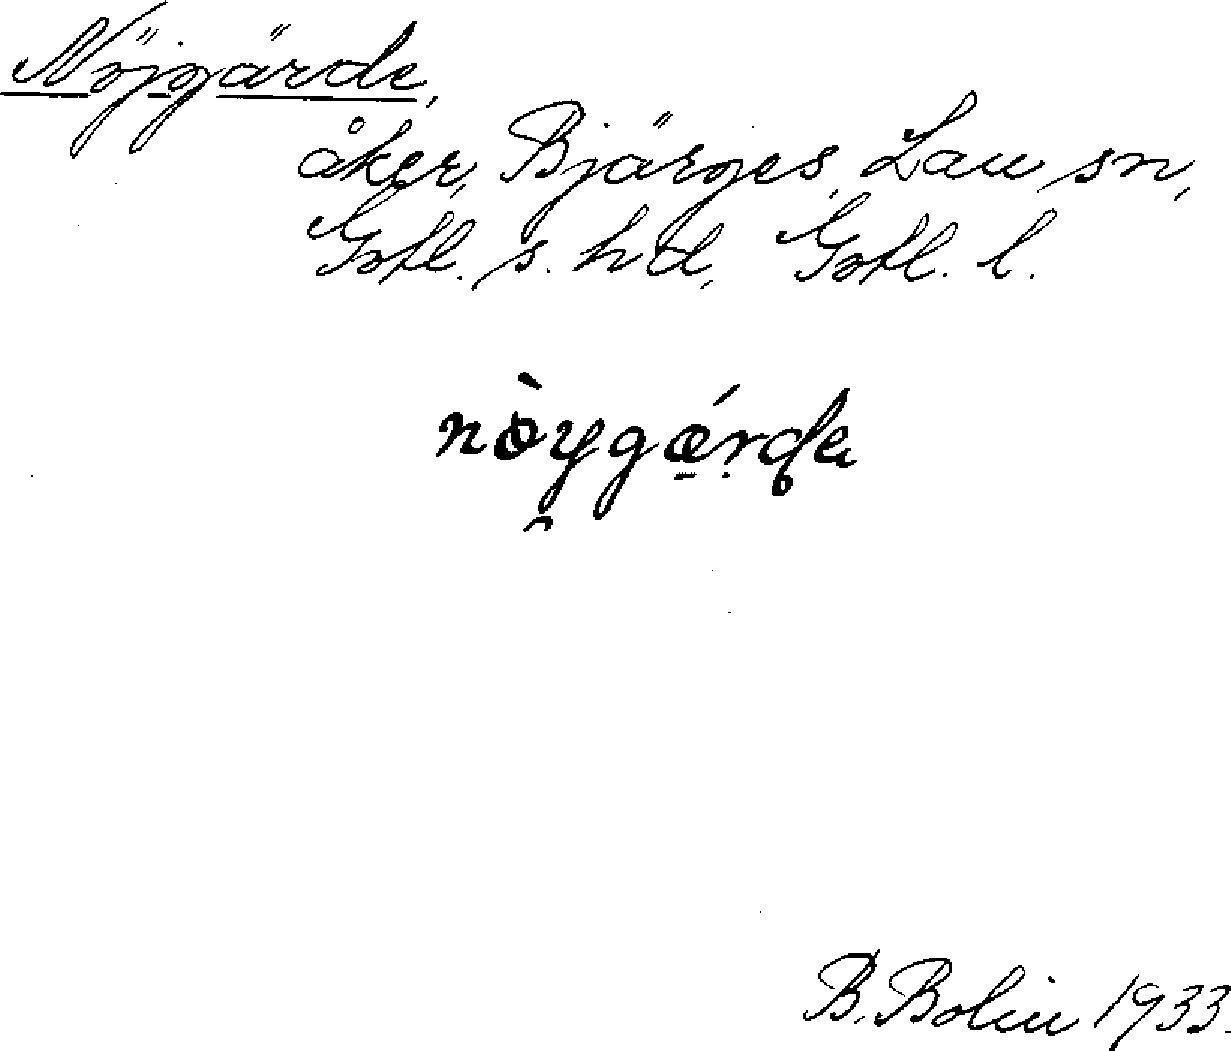 Nöjgärde,
åker, Bjärges, Lau sn,
Gotl. s. hd, Gotl. l.
nòygǽrde
B. Bolin 1933.